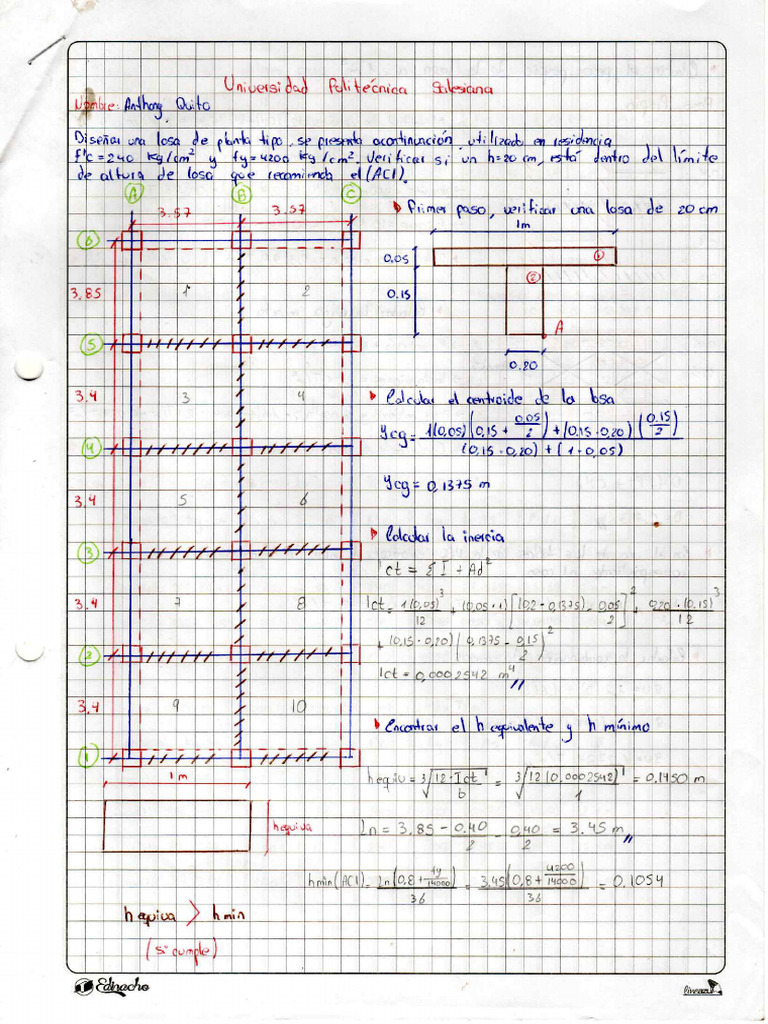 Universidad Politécnica Salesiana
Nombre: Anthony Quito
Diseñar una losa de planta tipo, se presenta acontinuación, utilizado en residencia
f'c = 240 kg/cm² y fy = 4200 kg/cm². Verificar si un h=20 cm, está dentro del límite
de altura de losa que recomienda el (ACI).
A B C
3.57 3.57
6
3.85
1 2
5
3.4
3 4
4
3.4
5 6
3
3.4
7 8
2
3.4
9 10
1
1 m
hequiva
h equiva > h min
(si cumple)
Primer paso, verificar una losa de 20 cm
1m
0.05
1
0.15
2
A
0.20
Calcular el centroide de la losa
Ycg = 1(0,05)(0,15 + 0,05/2) + (0,15 · 0,20)(0,15/2) / (0,15 · 0,20) + (1 · 0,05)
Ycg = 0,1375 m
Calcular la inercia
Ict = Σ I + Ad²
Ict = 1(0,05)³/12 + (0,05 · 1)[(0,2 - 0,1375) - 0,05/2]² + 0,20 · (0,15)³/12
+ (0,15 · 0,20)(0,1375 - 0,15/2)²
Ict = 0,0002542 m⁴
Encontrar el h equivalente y h mínimo
hequiv = ∛(12 · Ict / b) = ∛(12(0,0002542) / 1) = 0.1450 m
Ln = 3.85 - 0.40/2 - 0.40/2 = 3.45 m
hmin (ACI) = ln(0,8 + fy/14000) / 36 = 3.45(0,8 + 4200/14000) / 36 = 0.1054
Edinacho
lineazul